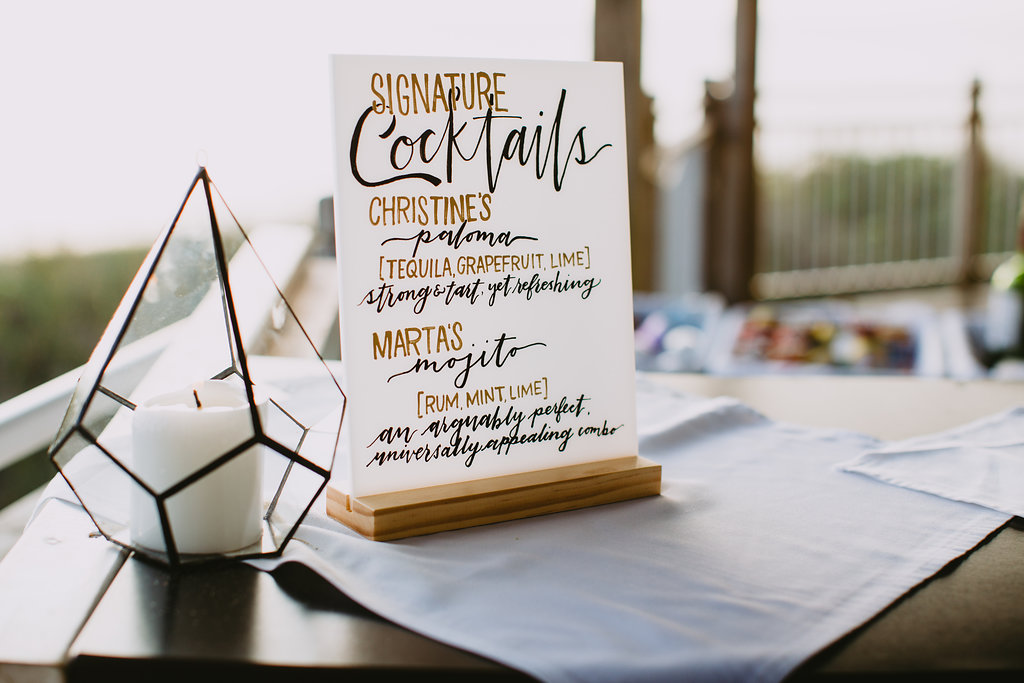 SIGNATURE
Cocktails
CHRISTINE'S
paloma
[TEQUILA, GRAPEFRUIT, LIME]
strong & tart, yet refreshing
MARTA'S
mojito
[RUM, MINT, LIME]
an arguably perfect,
universally appealing combo